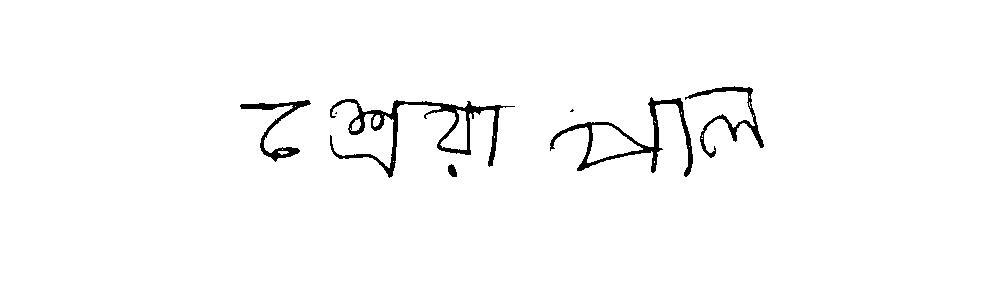 শ্রেয়া পাল